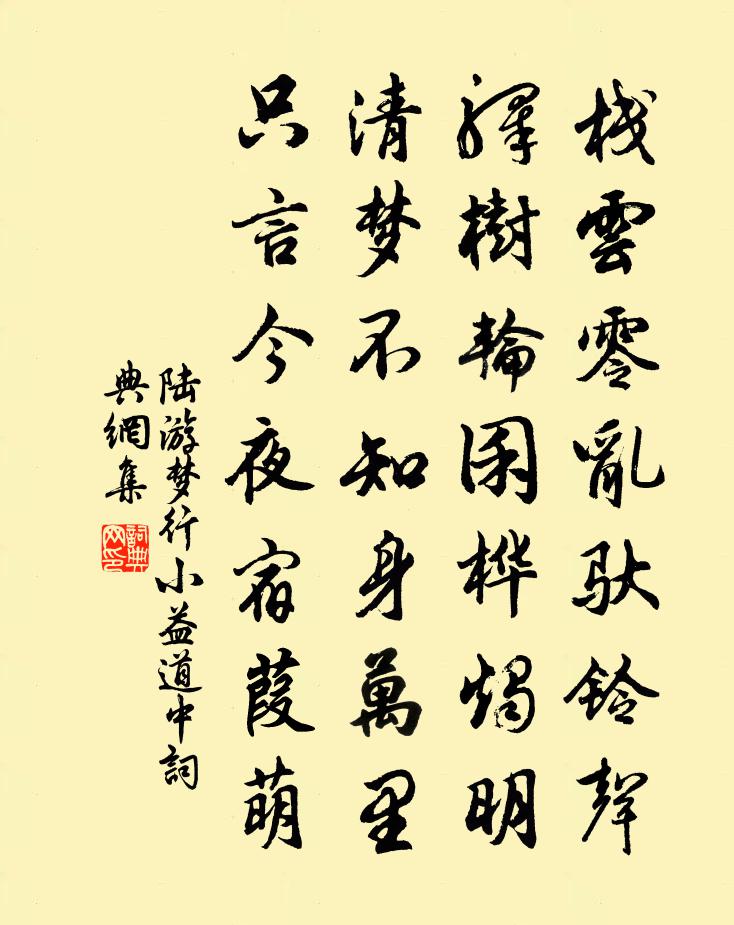 栈雲零亂馱鈴聲
驛樹輪囷桦燭明
清梦不知身萬里
只言今夜宿葭萌
陆游梦行小益道中詞
典網集
詞典
网印